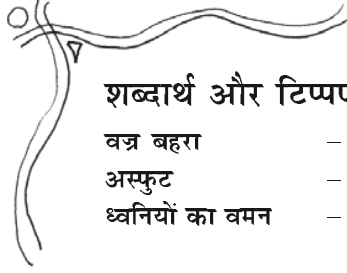 शब्दार्थ और टिप्पण
वज्र बहरा –
अस्फुट –
ध्वनियों का वमन –